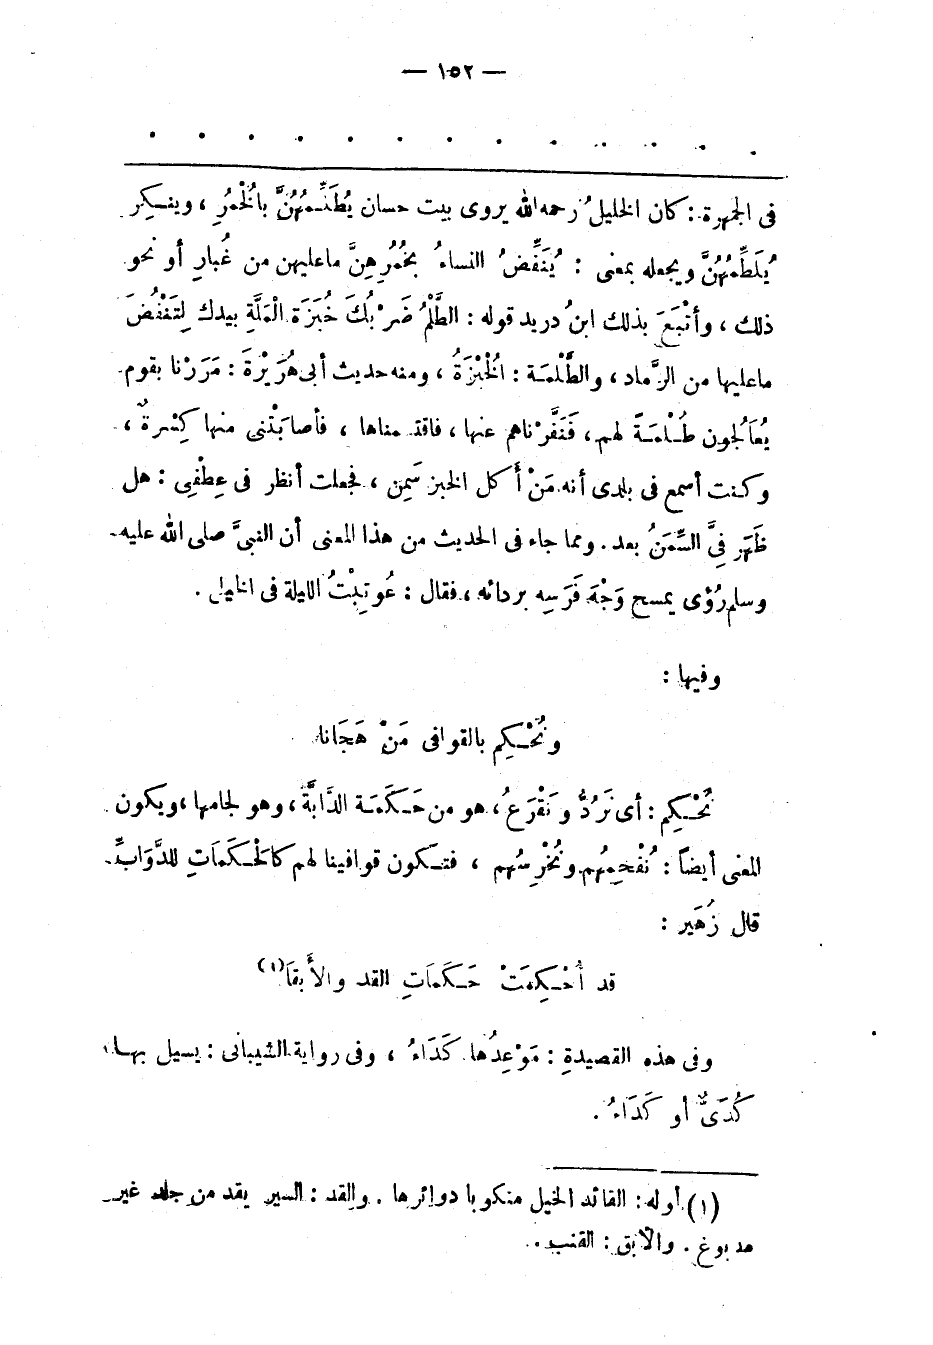 — ١٥٢ —
. . . . . . . . . . . . .
فى الجمهرة : كان الخليلُ رحمه الله يروى بيت حسان يُطَنِّـمُهُنَّ بالْخُمُرِ ، وينـكِر
يُلَطِّمُهُنَّ ويجعله بمعنى : يُنَفِّضُ النساءُ بخُمُرِهِنَّ ماعليهن من غُبارٍ أو نحو
ذلك ، وأتْبَعَ بذلك ابنُ دريد قوله : الطَّلْمُ ضَرْبُكَ خُبزَةَ الْمَلَّةِ بيدك لِتَنْفُضَ
ماعليها من الرَّماد ، والطُّلْمَة : الْخُبْزَةُ ، ومنه حديث أبى هُرَيْرةَ : مَرَرْنا بقوم
يُعَالجون طُـلْمَـةً لهم ، فَنَفَّرْناهم عنها ، فاقتسمناها ، فأصابَتْنى منها كِسْرةٌ ،
وكنت أسمع فى بلدى أنه مَنْ أَكل الخبز سَمِن ، فجعلت أنظر فى عِطْفِى : هل
ظَهَر فِىَّ السِّمَنُ بعد . ومما جاء فى الحديث من هذا المعنى أن النبىَّ صلى الله عليه
وسلم رُؤى يمسح وَجْهَ فَرَسِه بردائه ، فقال : عُوتِبْتُ الليلة فى الخيل .
وفيها :
ونُحْـكِم بالقوافى مَنْ هَجَانا
نُحْـكِم : أى نَرُدُّ ونَقْرَعُ ، هو من حَـكَمَـة الدَّابَّة ، وهو لجامها ، ويكون
المعنى أيضاً : نُفْحِمُهُم ونُخْرِسُهم ، فتـكون قوافينا لهم كالْحَـكَمَاتِ للدَّوَابِّ
قال زُهَير :
قد أُحْـكِمَتْ حَـكَمَاتِ القد والأَبَقَا (١)
وفى هذه القصيدةِ : مَوْعِدُها كَدَاءُ ، وفى رواية الشيبانى : يسيل بهـا
كُدَىٌّ أو كَدَاءُ .
(١) أوله : القائد الخيل منكوبا دوائرها . والقد : السير يقد من جلد غير
مدبوغ . والأبق : القنب .